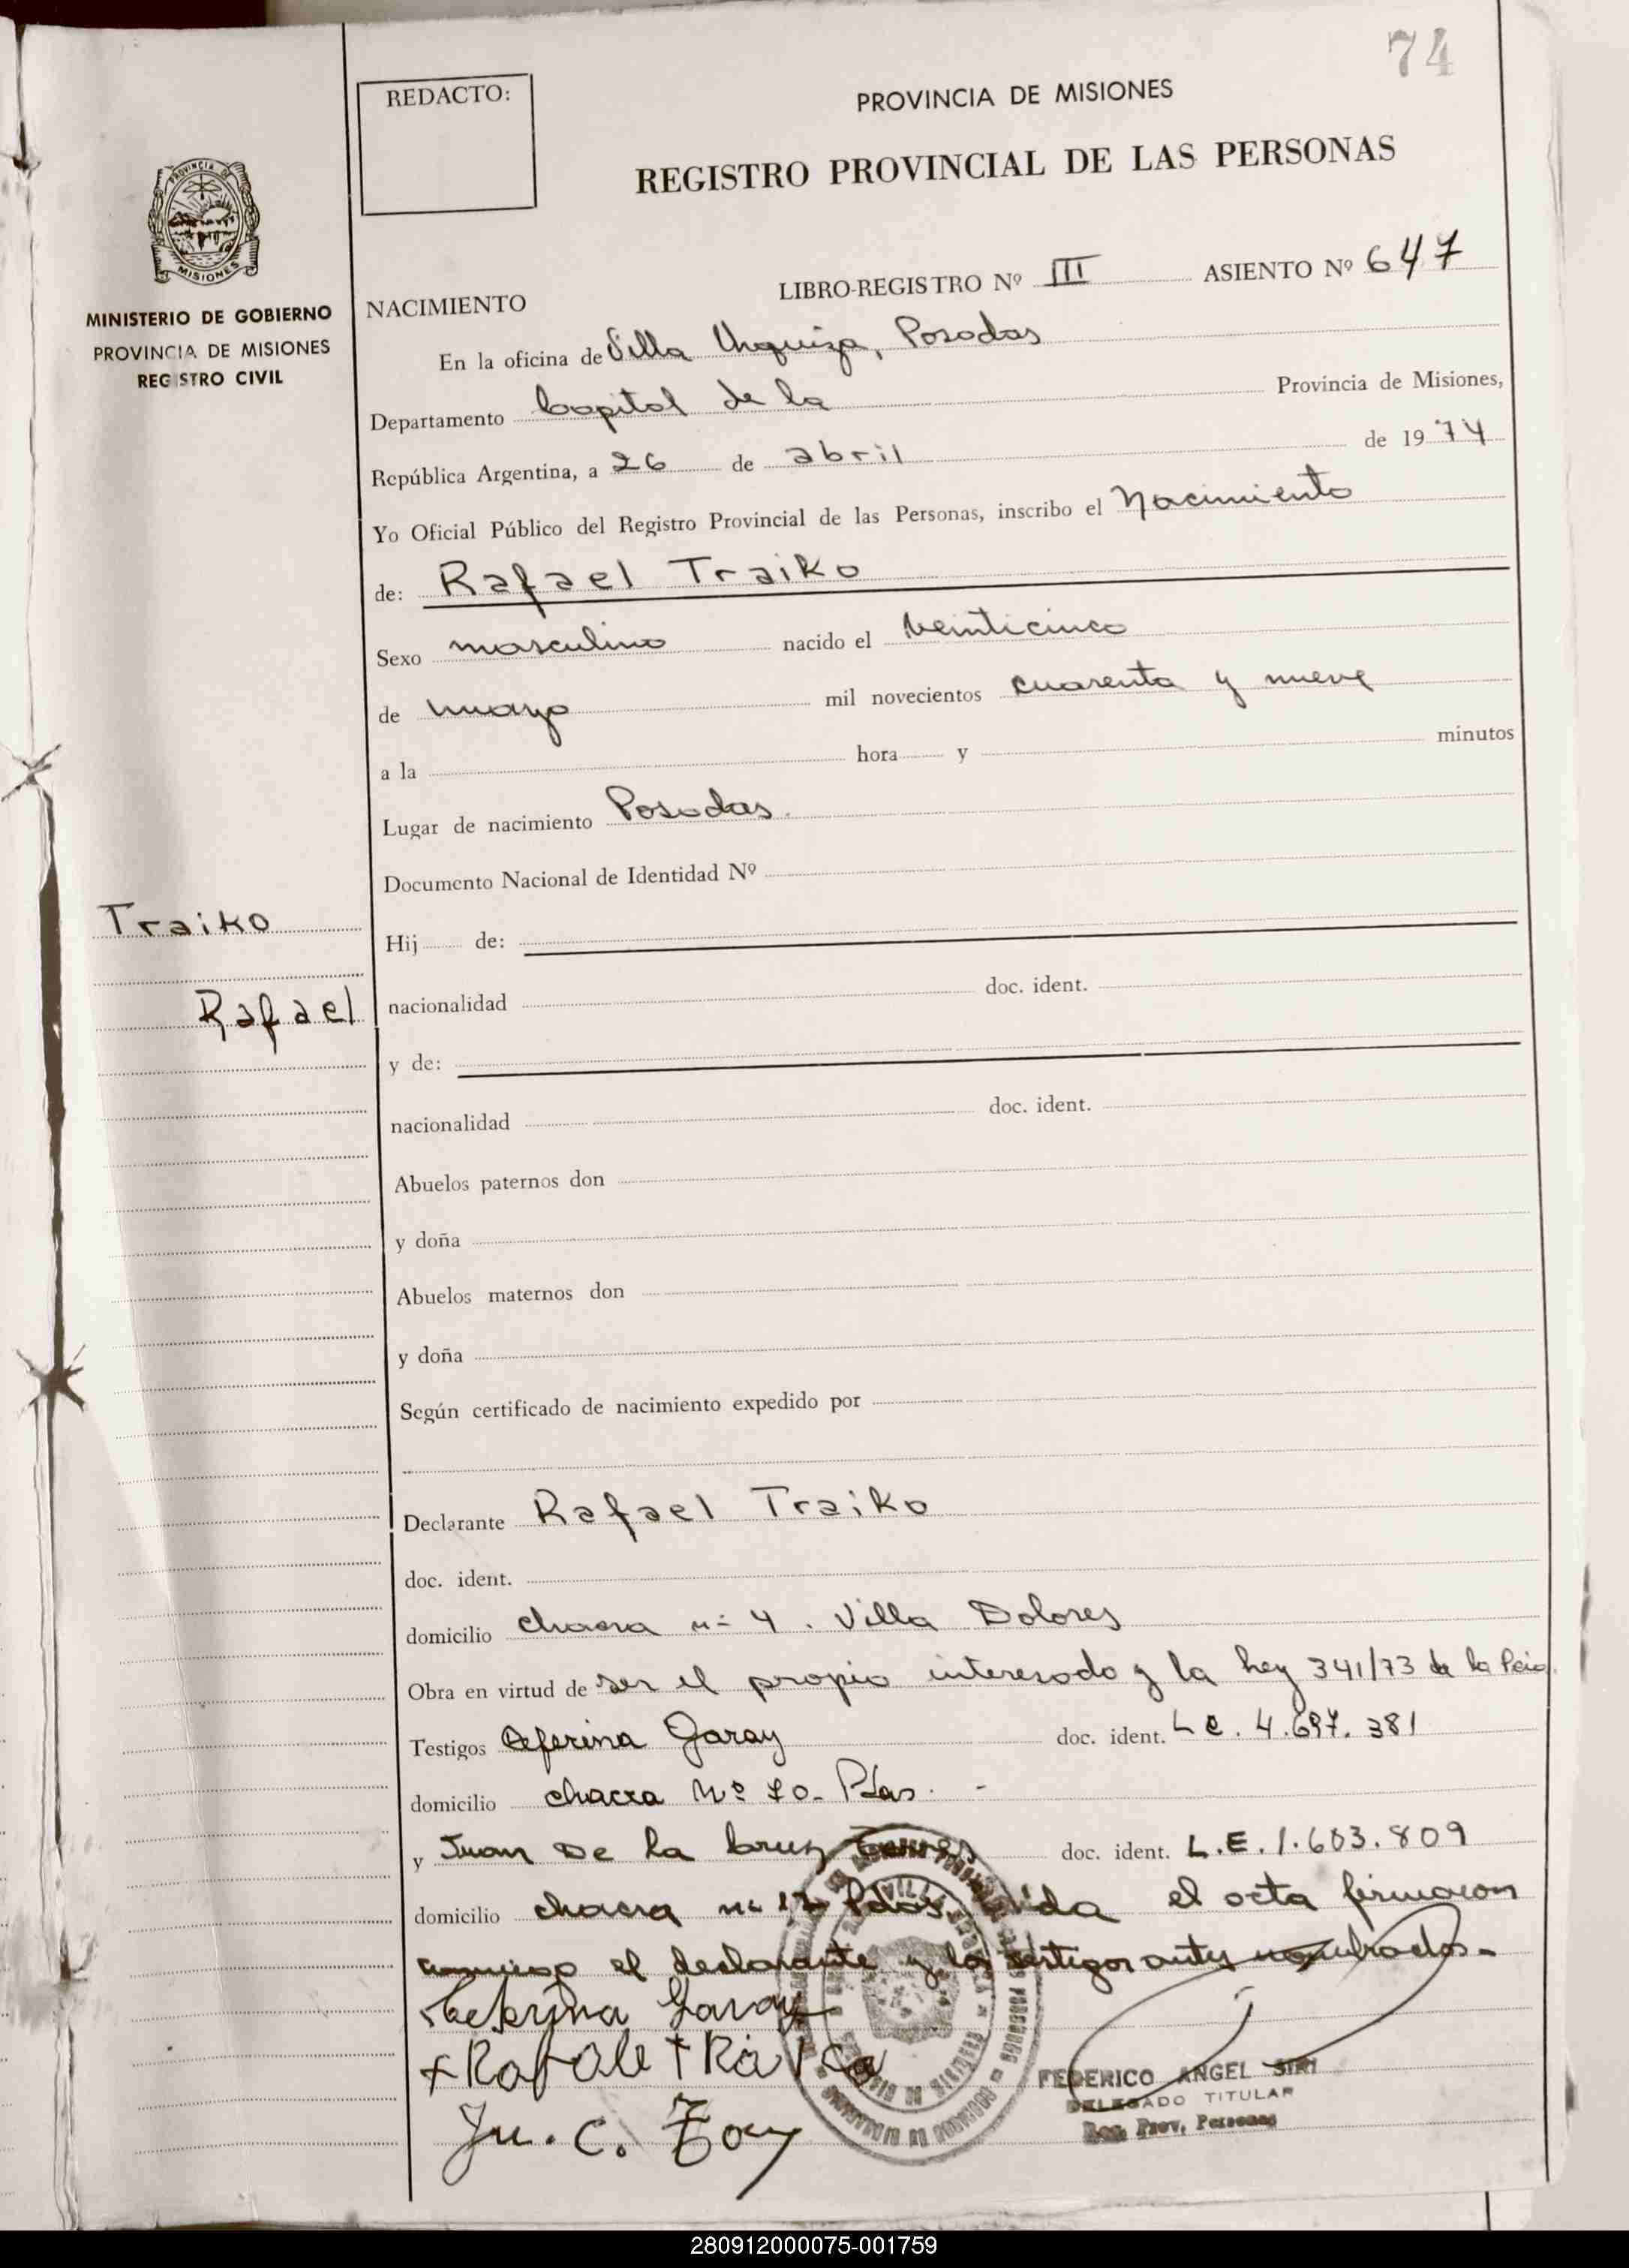 74
REDACTO:
PROVINCIA DE MISIONES
REGISTRO PROVINCIAL DE LAS PERSONAS
PROVINCIA DE
MISIONES
MINISTERIO DE GOBIERNO
PROVINCIA DE MISIONES
REGISTRO CIVIL
NACIMIENTO
LIBRO-REGISTRO Nº III ASIENTO Nº 647
En la oficina de Villa Urquiza, Posadas
Departamento Capital de la Provincia de Misiones,
República Argentina, a 26 de abril de 1974
Yo Oficial Público del Registro Provincial de las Personas, inscribo el Nacimiento
de: Rafael Traiko
Sexo masculino nacido el veinticinco
de mayo mil novecientos cuarenta y nueve
a la hora y minutos
Lugar de nacimiento Posadas.
Documento Nacional de Identidad Nº
Traiko
Rafael
Hij de:
nacionalidad doc. ident.
y de:
nacionalidad doc. ident.
Abuelos paternos don
y doña
Abuelos maternos don
y doña
Según certificado de nacimiento expedido por
Declarante Rafael Traiko
doc. ident.
domicilio chacra n= 4. Villa Dolores
Obra en virtud de ser el propio interesado y la ley 341/73 de la Pcia.
Testigos Ceferina Garay doc. ident. L C. 4.697.381
domicilio chacra Nº 70- Pdas. -
y Juan De la Cruz doc. ident. L.E. 1.603.809
domicilio chacra Pdas. el acta firmaron
conmigo el declarante y los testigos antes nombrados.-
Ceferina Garay
Ju. C.
FEDERICO ANGEL SIRI
DELEGADO TITULAR
Reg. Prov. Personas
280912000075-001759